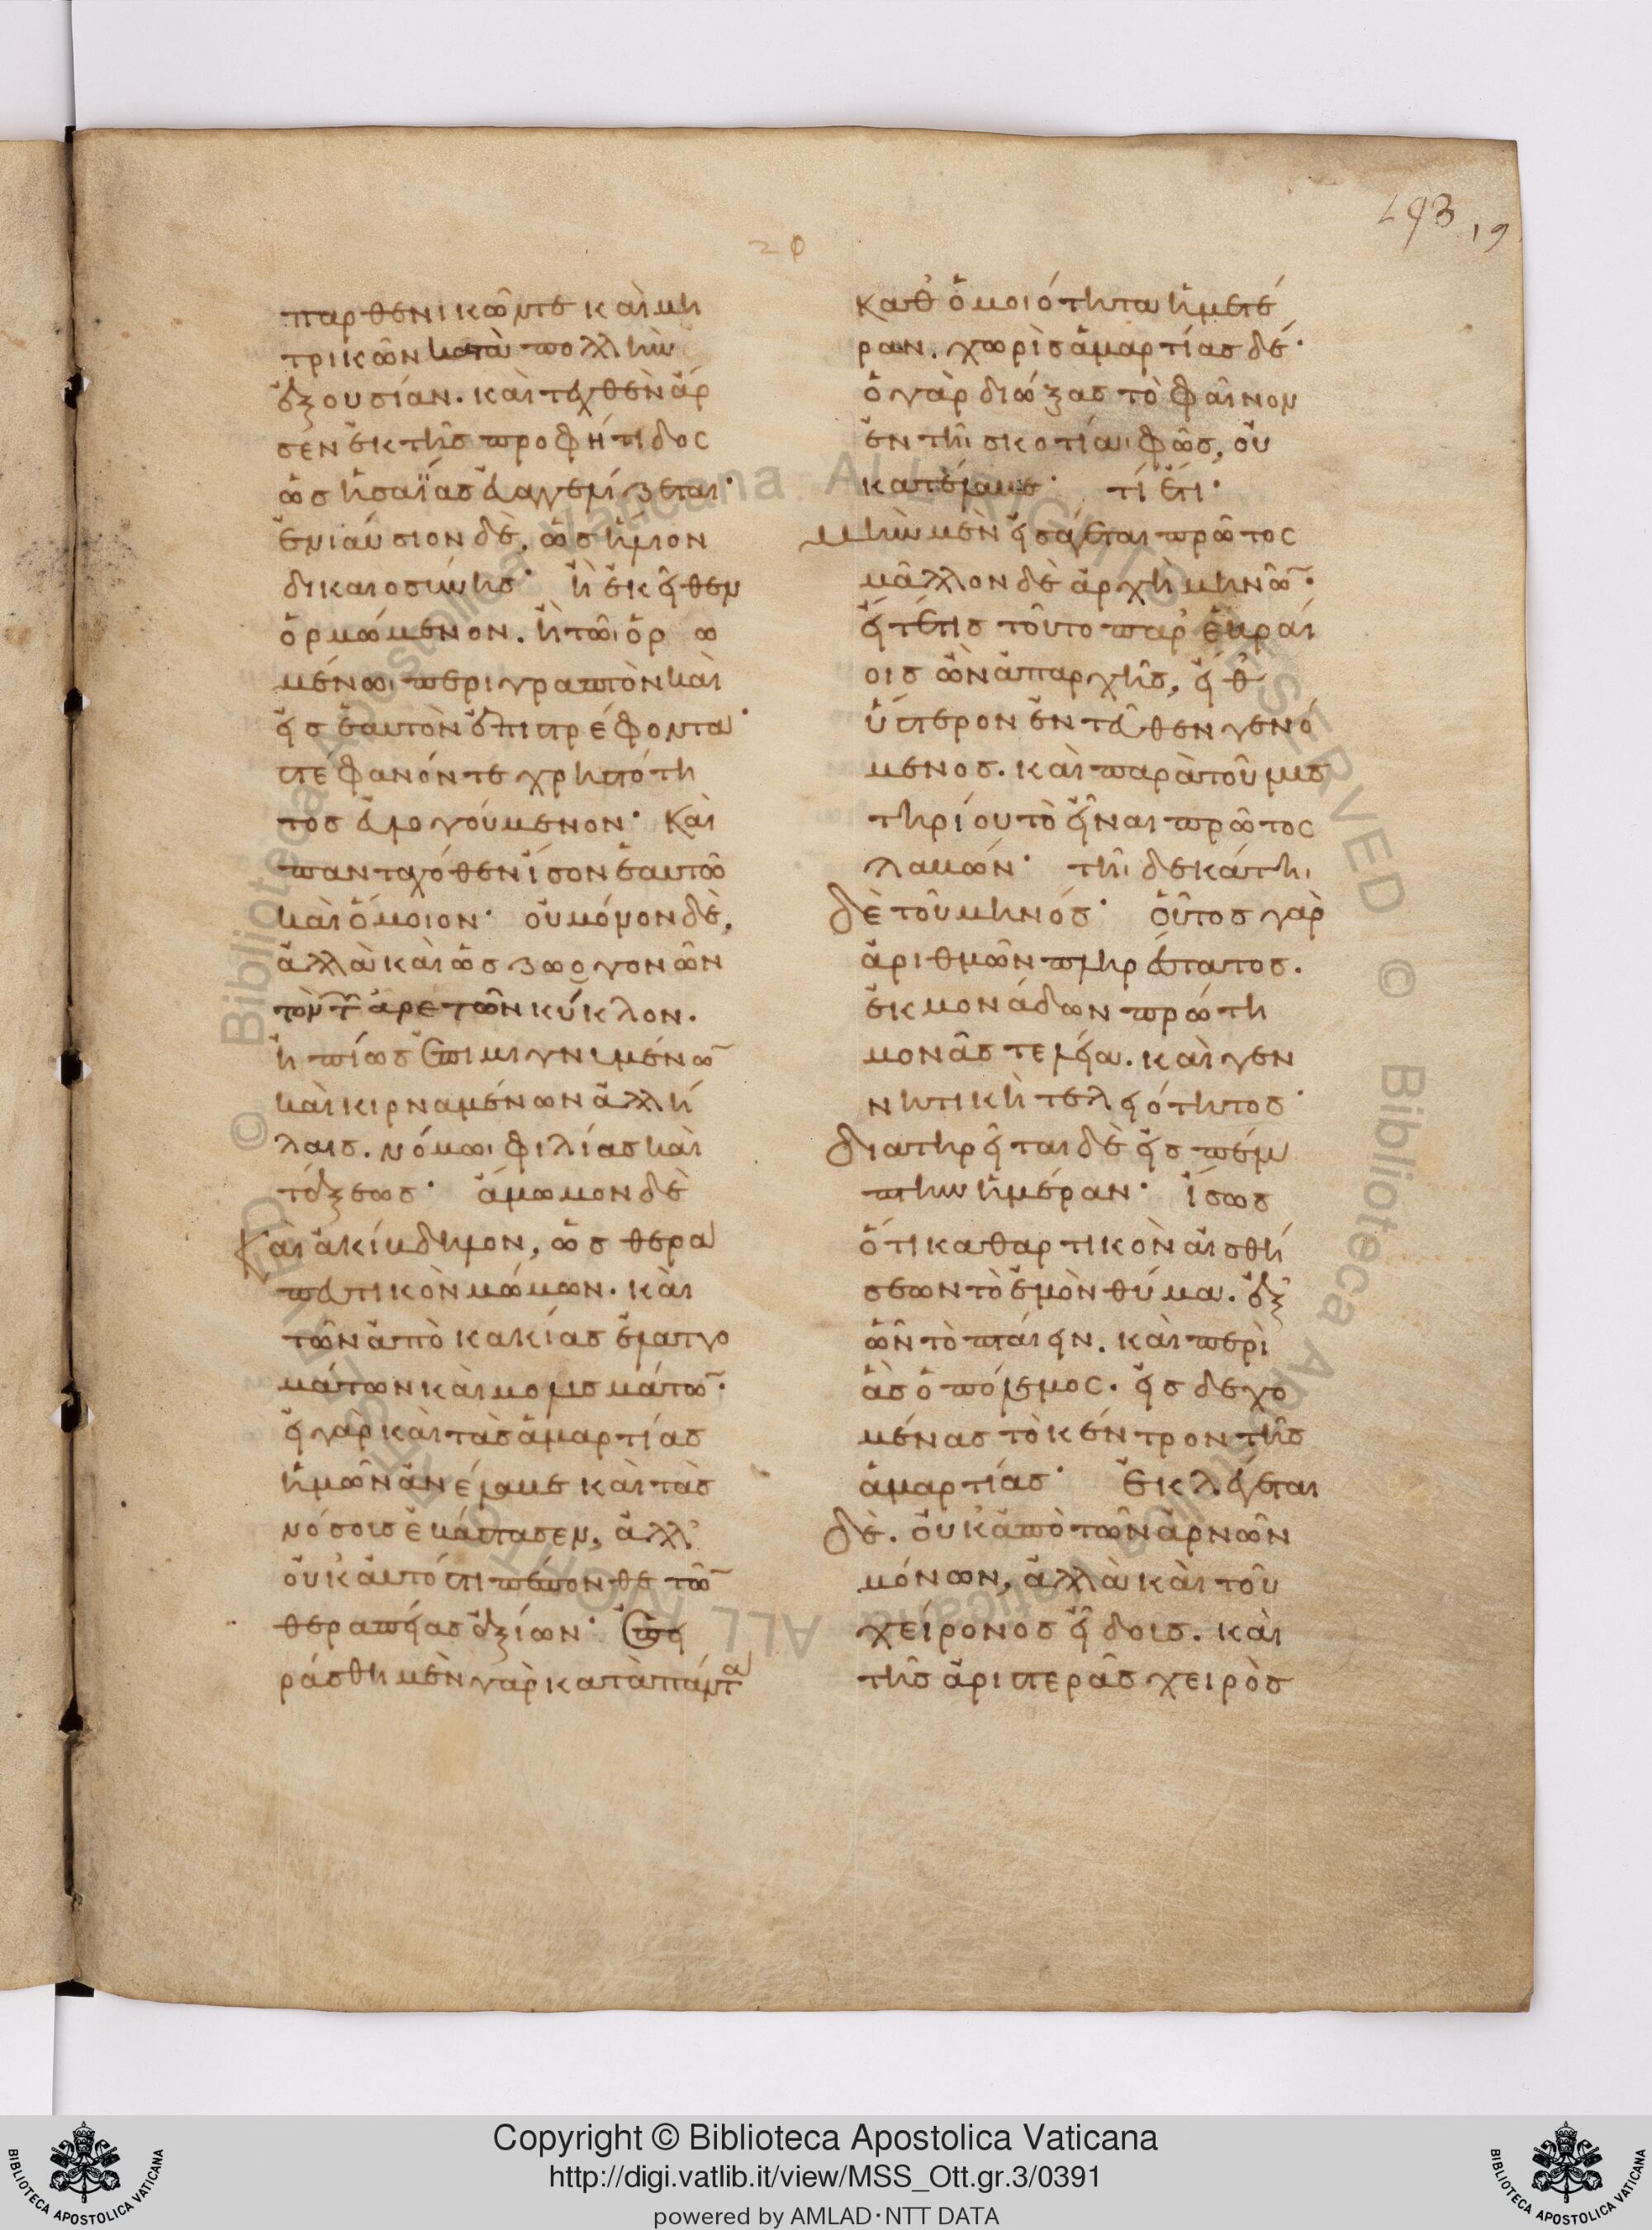 193
19
20
παρθενικῶν τε καὶ μη
τρικῶν κατὰ πολλὴν
ἐξουσίαν. καὶ ταχθὲν ἄρ
σεν ἐκ τῆς προφήτιδος
ὡς ἡσαΐας εὐαγγελίζεται·
ἐνιαύσιον δὲ, ὡς ἥλιον
δικαιοσύνης· ἢ ἐκεῖθεν
ὁρμώμενον. ἢ τῶι ὁρ ω
μένωι περιγραπτὸν καὶ
εἰς ἑαυτὸν ἐπιστρέφοντα·
στέφανόν τε χρηστότη
τος εὐλογούμενον· Καὶ
πανταχόθεν ἴσον ἑαυτῶ
καὶ ὅμοιον· οὐ μόνον δὲ,
ἀλλὰ καὶ ὡς ζωογονῶν
τὸν τῶν ἀρετῶν κύκλον.
ἡ πράως ἐπιμιγνυμένω̅
καὶ κιρναμένων ἀλλή
λαις. νόμωι φιλίας καὶ
τάξεως· ἄμωμον δὲ
Καὶ ἀκίνδυνον, ὡς θερα
πευτικὸν μώμων. καὶ
τῶν ἀπὸ κακίας ἐλαττω
μάτων καὶ μολυσμάτω̅·
εἰ γὰρ καὶ τὰς ἁμαρτίας
ἡμῶν ἀνέλαβε καὶ τὰς
νόσους ἐβάστασεν, ἀλλ'
οὐκ αὐτός τι πέπονθε τῶ̅
θεραπείας ἀξίων· ἐπει
ράσθη μὲν γὰρ κατὰ πάντα
καθ' ὁμοιότητα ἡμετέ
ραν. χωρὶς ἁμαρτίας δέ·
ὁ γὰρ διώξας τὸ φαῖνον
ἐν τῆι σκοτίαι φῶς, οὐ
κατέλαβε· τί ἔτι·
Μὴν μὲν εἰσάγεται πρῶτος
μᾶλλον δὲ ἀρχὴ μηνῶ̅·
εἴτέ τις τοῦτο παρ' ἑβραί
οις ὢν ἀπαρχῆς, εἴθ'
ὕστερον ἐντεῦθεν γενό
μενος. καὶ παρὰ τοῦ μυσ
τηρίου τὸ εἶναι πρῶτος
λαβών· τῆι δεκάτηι
δὲ τοῦ μηνός· οὗτος γὰρ
ἀριθμῶν πληρέστατος.
ἐκ μονάδων πρώτη
μονὰς τελεία. καὶ γεν
νητικὴ τελειότητος·
διατηρεῖται δὲ εἰς πέμ
πτην ἡμέραν· ἴσως
ὅτι καθαρτικὸν αἰσθή
σεων τὸ ἐμὸν θύμα. ἐξ
ὧν τὸ πταίειν. καὶ περὶ
ἃς ὁ πόλεμος. εἰς δεχο
μένας τὸ κέντρον τῆς
ἁμαρτίας· ἐκλέγεται
δὲ. οὐκ ἀπὸ τῶν ἀρνῶν
μόνων, ἀλλὰ καὶ τοῦ
χείρονος εἴδους. καὶ
τῆς ἀριστερᾶς χειρὸς
Copyright © Biblioteca Apostolica Vaticana
http://digi.vatlib.it/view/MSS_Ott.gr.3/0391
powered by AMLAD·NTT DATA